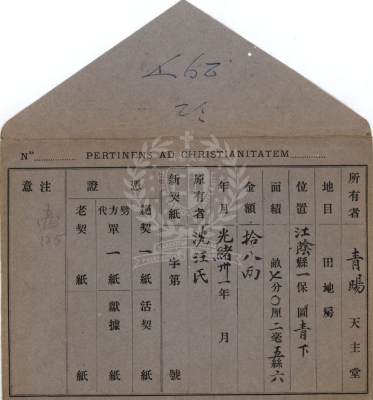 Nos PERTINENS AD CHRISTIANITATEM
所有者 青陽 天主堂
地目 田地房
位置 江陰縣一保 圖青下
面績 畝七分〇厘二毫五絲六
金額 拾八両
年月 光緒卅一年 月
原有者 沈汪氏
新契紙 字第 號
憑 絕契一紙 活契 紙
證 代方單一紙 獻據 紙
老契 紙
注意